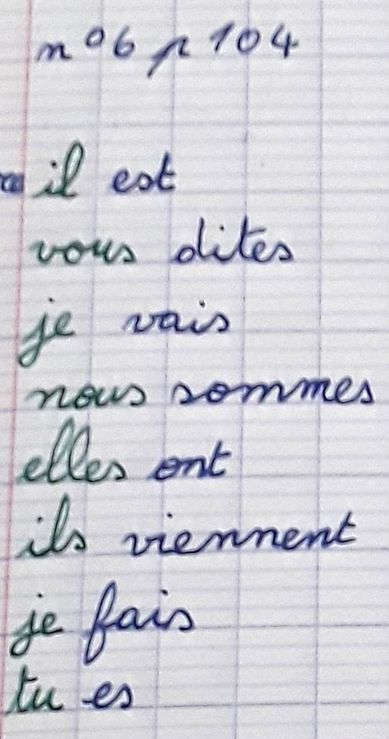 n°6 p 104
il est
vous dites
je vais
nous sommes
elles ont
ils viennent
je fais
tu es